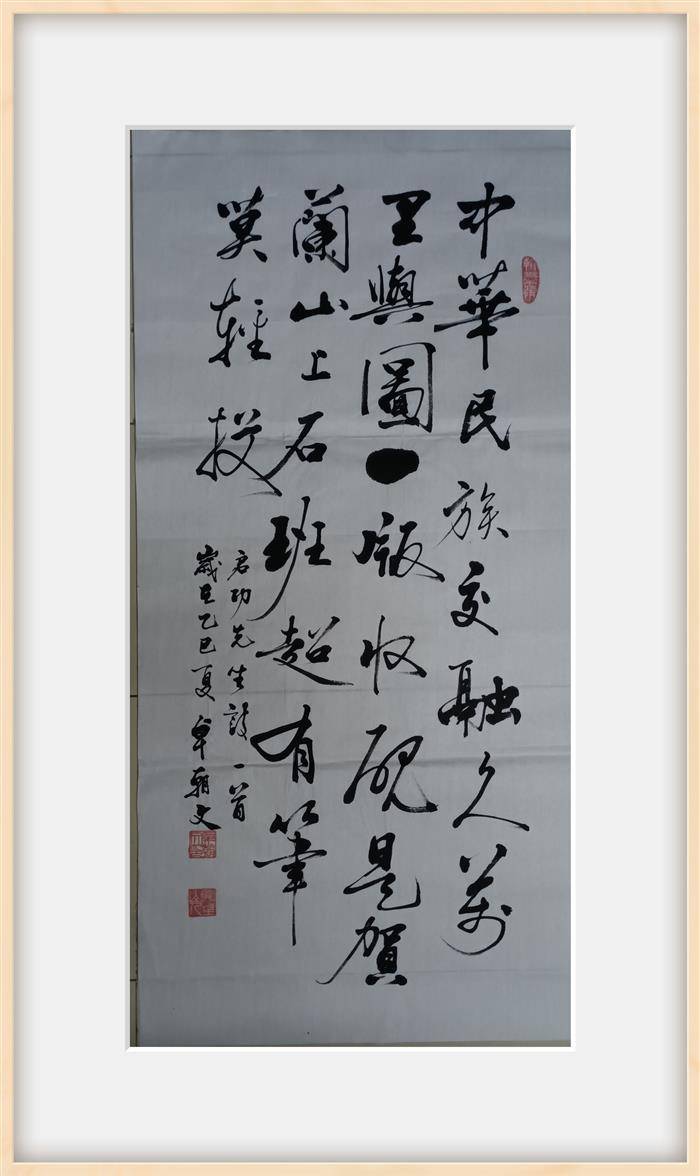 中華民族交融久萬
里輿圖一版收硯是賀
蘭山上石班超有筆
莫輕投
启功先生詩一首
歲在乙巳夏